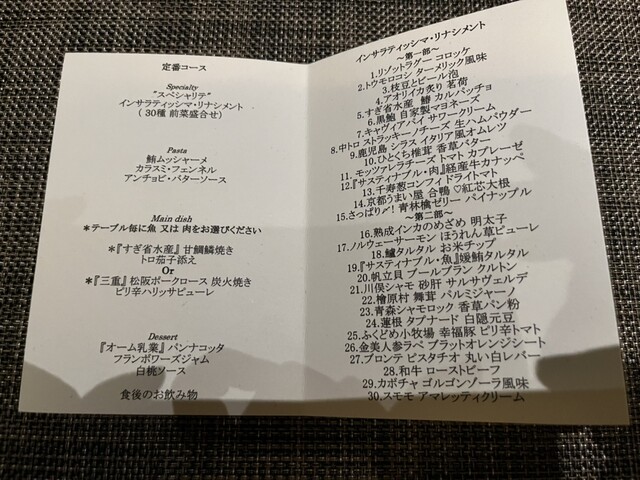 定番コース
Specialty
"スペシャリテ"
インサラティッシマ・リナシメント
(30種 前菜盛合せ)
Pasta
鮪ムッシャーメ
カラスミ・フェンネル
アンチョビ・バターソース
Main dish
*テーブル毎に魚 又は 肉をお選びください
*『すぎ省水産』甘鯛鱗焼き
トロ茄子添え
Or
*『三重』松阪ポークロース 炭火焼き
ピリ辛ハリッサピューレ
Dessert
『オーム乳業』パンナコッタ
フランボワーズジャム
白桃ソース
食後のお飲み物
インサラティッシマ・リナシメント
～第一部～
1.リゾットラグー コロッケ
2.トウモロコシ ターメリック風味
3.枝豆とビール泡
4.アオリイカ炙り 茗荷
5.すぎ省水産 鰆 カルパッチョ
6.黒鮑 自家製マヨネーズ
7.キャヴィアパイ サワークリーム
8.中トロ ストラッキーノチーズ 生ハムパウダー
9.鹿児島 シラス イタリア風オムレツ
10.ひとくち稚茸 香草バター
11.モッツァレラチーズ トマト カプレーゼ
12.『サスティナブル・肉』経産牛カナッペ
13.千寿葱コンフィ ドライトマト
14.京都うまい屋 合鴨♡紅芯大根
15.さっぱり〆! 青林檎ゼリー パイナップル
～第二部～
16.熟成インカのめざめ 明太子
17.ノルウェーサーモン ほうれん草ピューレ
18.鱸タルタル お米チップ
19.『サスティナブル・魚』媛鮪タルタル
20.帆立貝 ブールブラン クルトン
21.川俣シャモ 砂肝 サルサヴェルデ
22.檜原村 舞茸 パルミジャーノ
23.青森シャモロック 香草パン粉
24.蓮根 タプナード 白隠元豆
25.ふくどめ小牧場 幸福豚 ピリ辛トマト
26.金美人参ラペ ブラッドオレンジシート
27.ブロンテ ピスタチオ 丸い白レバー
28.和牛 ローストビーフ
29.カボチャ ゴルゴンゾーラ風味
30.スモモ アマレッティクリーム